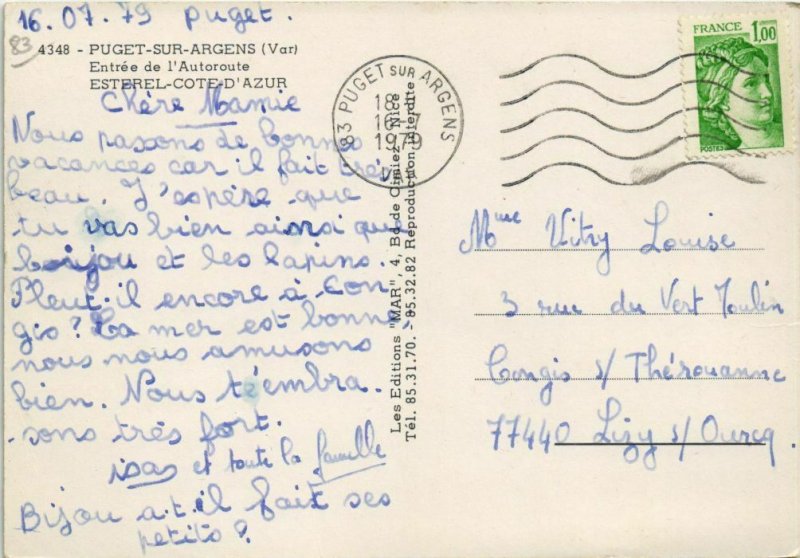 16.07.79 Puget.
83
4348 - PUGET-SUR-ARGENS (Var)
Entrée de l'Autoroute
ESTEREL-COTE-D'AZUR
Chère Mamie
Nous passons de bonnes
vacances car il fait très
beau. J'espère que
tu vas bien ainsi que
bijou et les lapins.
Pleut-il encore à Con
gis? La mer est bonne
nous nous amusons
bien. Nous t'embra.
sons très fort.
isas et toute la famille
Bijou a.t.il fait ses
petits?
Les Editions "MAR", 4, Bd de Cimiez - Nice
Tél. 85.31.70. - 85.32.82 Reproduction interdite
83 PUGET SUR ARGENS
18
16-7
1979
FRANCE 1,00
POSTES
Mme Vitry Louise
3 rue du Vert Moulin
Congis s/ Thérouanne
77440 Lizy s/ Ourcq